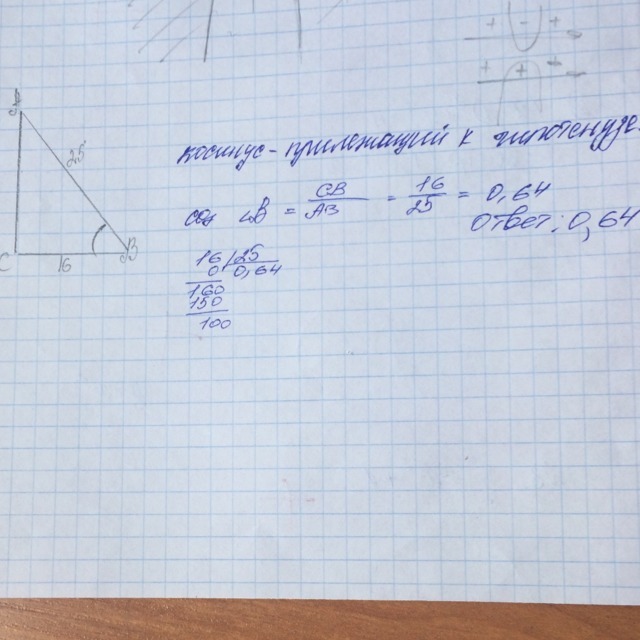 A
25
C
16
B
косинус - прилежащий к гипотенузе.
cos ∠B = CB/AB = 16/25 = 0,64
Ответ: 0,64
16 | 25
0 0,64
160
150
100
+ - +
+ + -